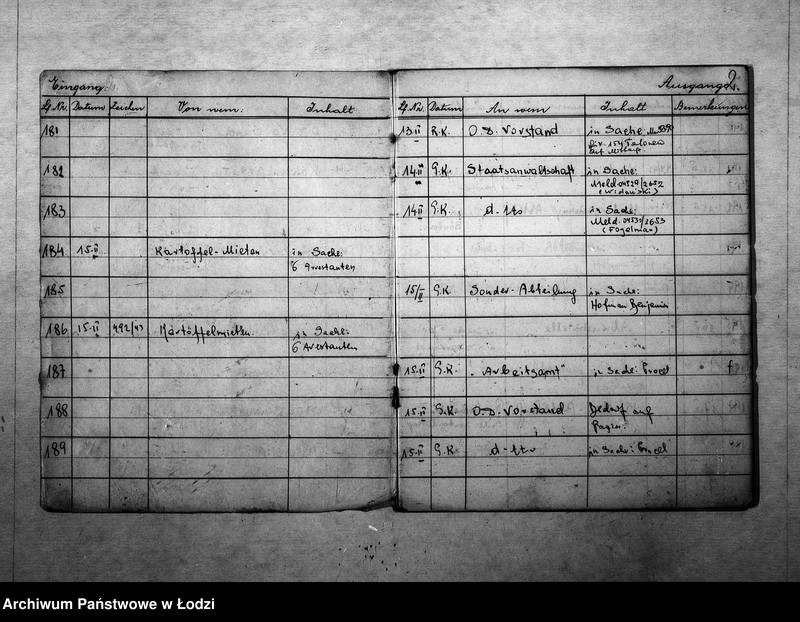 Eingang.
Lf. Nr. Datum Zeichen Von wem: Inhalt
181
182
183
184 15.II Kartoffel-Mieten in Sache:
6 Arrestanten
185
186 15.II 492/43 Kartoffelmieten. in Sache:
6 Arestanten
187
188
189
Ausgang 2.
Lf. Nr. Datum An wem Inhalt Bemerkungen
13.II R.K. O.D. Vorstand in Sache:
14.II G.K. Staatsanwaltschaft in Sache:
Meld. 04529/2652
(Widawski)
14.II G.K. d-tto in Sache:
Meld. 04531/2653
(Fogelman)
15/II G.K. Sonder-Abteilung in Sache:
Hofman Benjamin
15.II G.K. "Arbeitsamt" in Sache:
15.II G.K. O.D. Vorstand Bedarf auf
Papier.
15.II G.K. d-tto in Sache:
Archiwum Państwowe w Łodzi